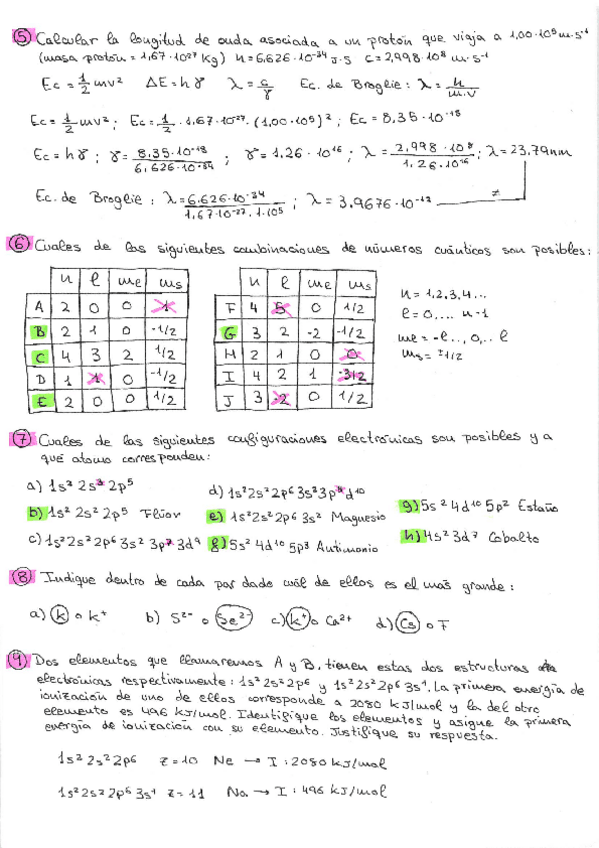 ⑤ Calcular la longitud de onda asociada a un protón que viaja a 1,00·10⁵ m·s⁻¹
(masa protón = 1,67·10²⁷ Kg) h = 6,626·10⁻³⁴ J·s C = 2,998·10⁸ m·s⁻¹
Ec = 1/2 mv² ΔE = h γ λ = c/γ Ec. de Broglie: λ = h/m.v
Ec = 1/2 mv² ; Ec = 1/2 · 1,67·10⁻²⁷ · (1,00·10⁵)² ; Ec = 8,35·10⁻¹⁸
Ec = h γ ; γ = 8,35·10⁻¹⁸/6,626·10⁻³⁴ ; γ = 1,26·10¹⁶ ; λ = 2,998·10⁸/1,26·10¹⁶ ; λ = 23,79nm
Ec. de Broglie : λ = 6.626·10⁻³⁴/1,67·10⁻²⁷·1·10⁵ ; λ = 3,9676·10⁻¹² ≠
⑥ Cuales de las siguientes combinaciones de números cuánticos son posibles:
n l me ms
A 2 0 0 1
B 2 1 0 -1/2
C 4 3 2 1/2
D 1 1 0 -1/2
E 2 0 0 1/2
n l me ms
F 4 5 0 1/2
G 3 2 -2 -1/2
H 2 1 0 0
I 4 2 1 -3/2
J 3 -2 0 1/2
n = 1,2,3,4...
l = 0,... n-1
me = -l.., 0,.. l
ms = ±1/2
⑦ Cuales de las siguientes configuraciones electrónicas son posibles y a
qué atomo corresponden:
a) 1s² 2s³ 2p⁵
b) 1s² 2s² 2p⁵ Flúor
c) 1s² 2s² 2p⁶ 3s² 3p⁷ 3d⁹
d) 1s² 2s² 2p⁶ 3s² 3p⁸ d¹⁰
e) 1s² 2s² 2p⁶ 3s² Magnesio
f) 5s² 4d¹⁰ 5p³ Antimonio
g) 5s² 4d¹⁰ 5p² Estaño
h) 4s² 3d⁷ Cobalto
⑧ Indique dentro de cada par dado cuál de ellos es el más grande:
a) K o K⁺ b) S²⁻ o Se²⁻ c) K⁺ o Ca²⁺ d) Cs o F
⑨ Dos elementos que llamaremos A y B, tienen estas dos estructuras
electrónicas respectivamente: 1s² 2s² 2p⁶ y 1s² 2s² 2p⁶ 3s¹. La primera energía de
ionización de uno de ellos corresponde a 2080 kJ/mol y la del otro
elemento es 496 kJ/mol. Identifique los elementos y asigne la primera
energía de ionización con su elemento. Justifique su respuesta.
1s² 2s² 2p⁶ Z = 10 Ne → I : 2080 kJ/mol
1s² 2s² 2p⁶ 3s¹ Z = 11 Na → I : 496 kJ/mol